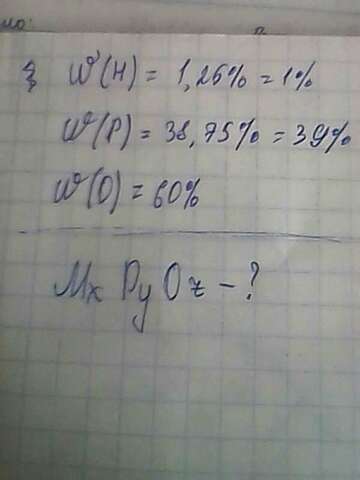 3 W(H) = 1,25% = 1%
W(P) = 38,75% = 39%
W(O) = 60%
Mx Py Oz - ?